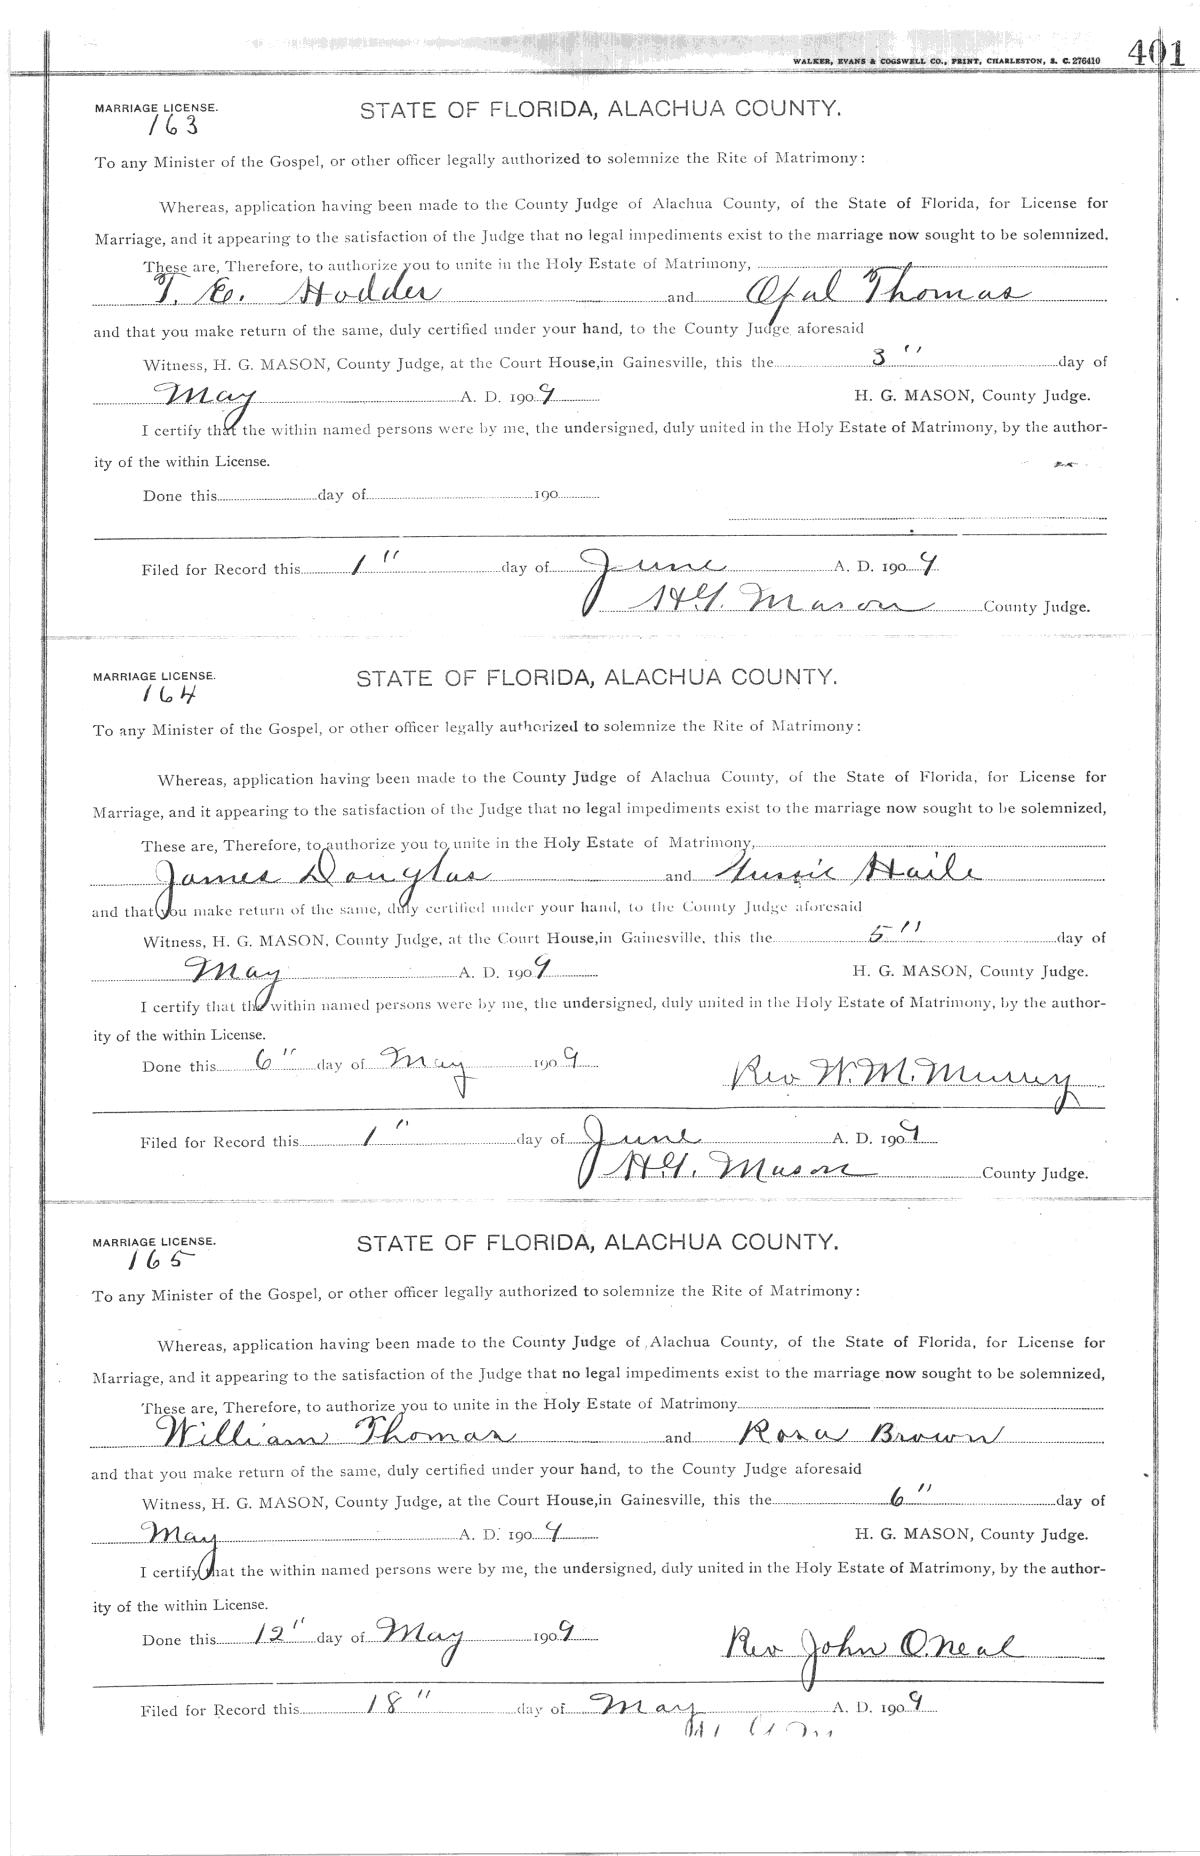 WALKER, EVANS & COGSWELL CO., PRINT, CHARLESTON, S. C. 276410 401
MARRIAGE LICENSE. STATE OF FLORIDA, ALACHUA COUNTY.
163
To any Minister of the Gospel, or other officer legally authorized to solemnize the Rite of Matrimony:
Whereas, application having been made to the County Judge of Alachua County, of the State of Florida, for License for
Marriage, and it appearing to the satisfaction of the Judge that no legal impediments exist to the marriage now sought to be solemnized.
These are, Therefore, to authorize you to unite in the Holy Estate of Matrimony,
T. E. Hodder and Opal Thomas
and that you make return of the same, duly certified under your hand, to the County Judge aforesaid
Witness, H. G. MASON, County Judge, at the Court House, in Gainesville, this the 3" day of
May A. D. 1909 H. G. MASON, County Judge.
I certify that the within named persons were by me, the undersigned, duly united in the Holy Estate of Matrimony, by the author-
ity of the within License.
Done this day of 190
Filed for Record this 1" day of June A. D. 1909
H.G. Mason County Judge.
MARRIAGE LICENSE. STATE OF FLORIDA, ALACHUA COUNTY.
164
To any Minister of the Gospel, or other officer legally authorized to solemnize the Rite of Matrimony:
Whereas, application having been made to the County Judge of Alachua County, of the State of Florida, for License for
Marriage, and it appearing to the satisfaction of the Judge that no legal impediments exist to the marriage now sought to be solemnized,
These are, Therefore, to authorize you to unite in the Holy Estate of Matrimony,
James Douglas and Haile
and that you make return of the same, duly certified under your hand, to the County Judge aforesaid
Witness, H. G. MASON, County Judge, at the Court House, in Gainesville, this the 5" day of
May A. D. 1909 H. G. MASON, County Judge.
I certify that the within named persons were by me, the undersigned, duly united in the Holy Estate of Matrimony, by the author-
ity of the within License.
Done this 6" day of May 1909 Rev W. M. Murrey
Filed for Record this 1" day of June A. D. 1909
H.G. Mason County Judge.
MARRIAGE LICENSE. STATE OF FLORIDA, ALACHUA COUNTY.
165
To any Minister of the Gospel, or other officer legally authorized to solemnize the Rite of Matrimony:
Whereas, application having been made to the County Judge of Alachua County, of the State of Florida, for License for
Marriage, and it appearing to the satisfaction of the Judge that no legal impediments exist to the marriage now sought to be solemnized,
These are, Therefore, to authorize you to unite in the Holy Estate of Matrimony
William Thomas and Rosa Brown
and that you make return of the same, duly certified under your hand, to the County Judge aforesaid
Witness, H. G. MASON, County Judge, at the Court House, in Gainesville, this the 6" day of
May A. D. 1909 H. G. MASON, County Judge.
I certify that the within named persons were by me, the undersigned, duly united in the Holy Estate of Matrimony, by the author-
ity of the within License.
Done this 12" day of May 1909 Rev John O.Neal
Filed for Record this 18" day of May A. D. 1909